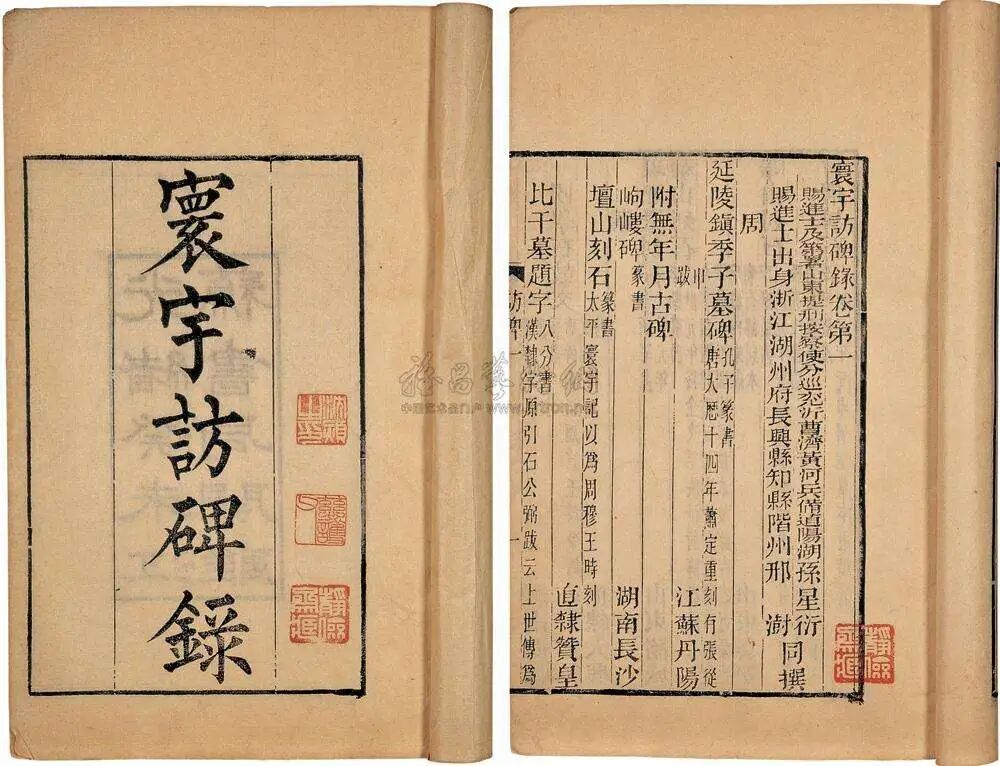 寰宇訪碑錄
寰宇訪碑錄卷第一
賜進士及第署山東提刑按察使分巡兗沂曹濟黃河兵備道陽湖孫星衍
賜進士出身浙江湖州府長興縣知縣階州邢 澍同撰
周
延陵鎮季子墓碑 孔子篆書 唐大歷十四年蕭定重刻有張從
申跋 江蘇丹陽
附無年月古碑
岣嶁碑 篆書 湖南長沙
壇山刻石 篆書 太平寰宇記以為周穆王時刻 直隸贊皇
比干墓題字 八分書 漢隸字原引石公弼跋云上世傳爲
訪碑一 一